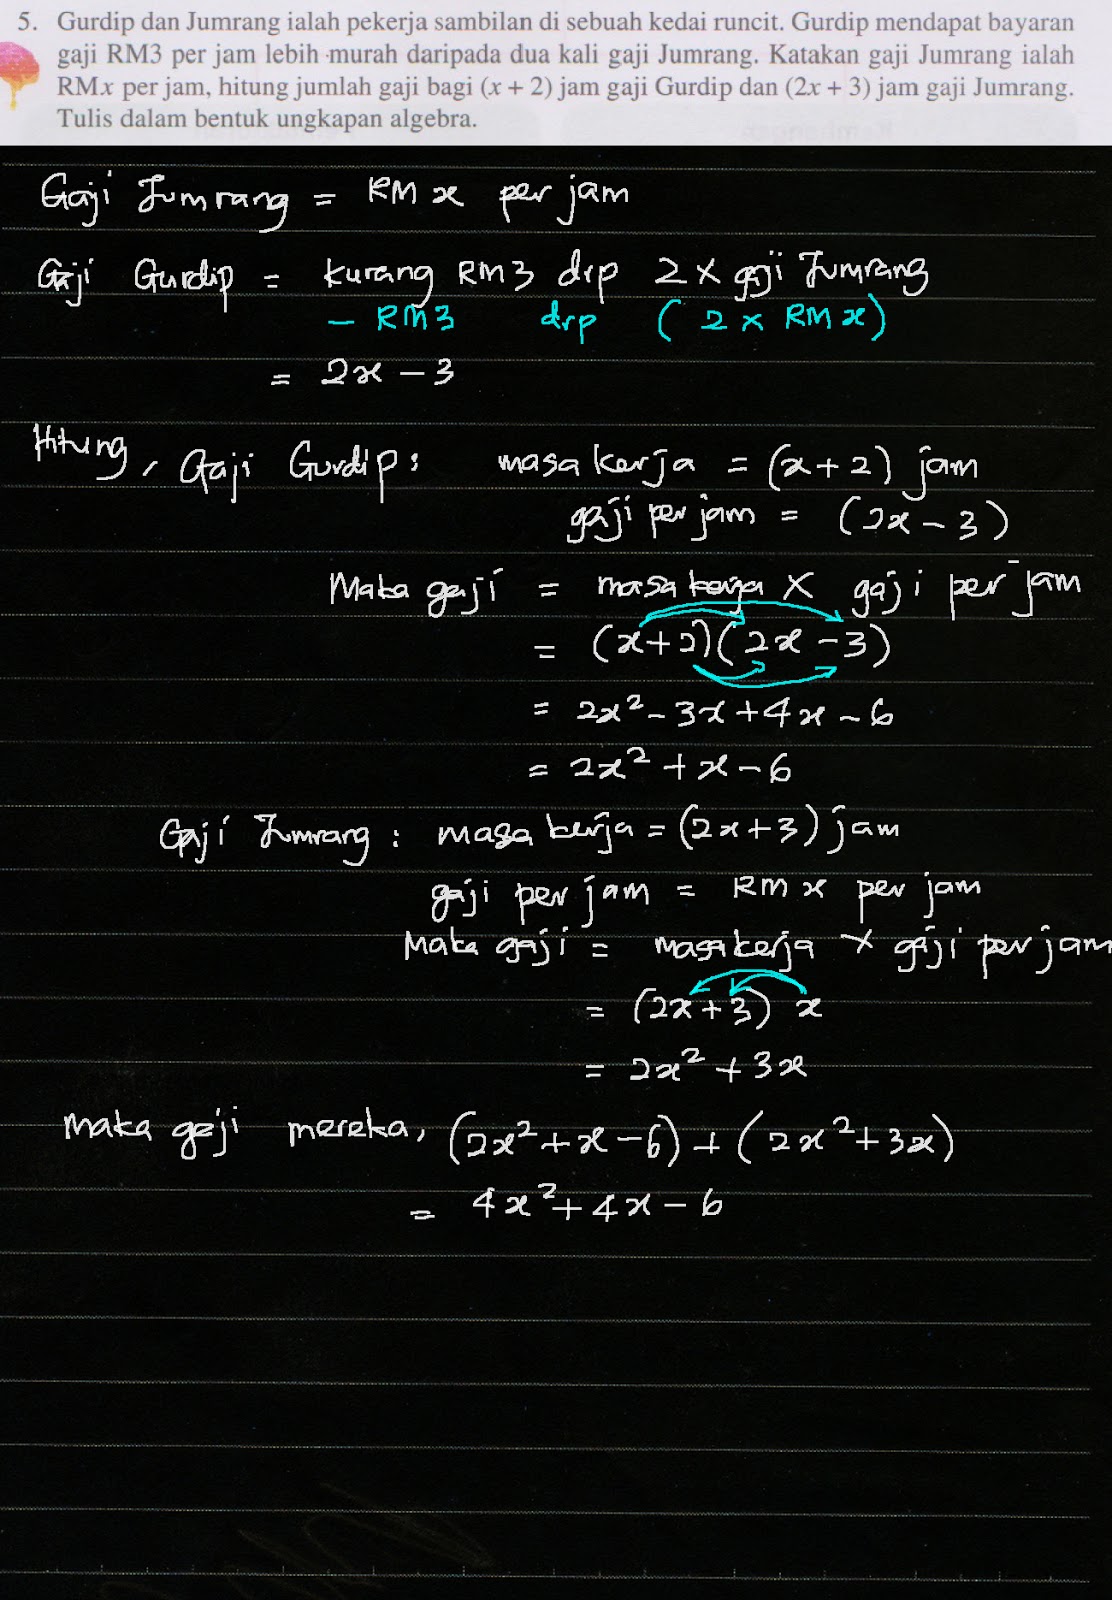 5. Gurdip dan Jumrang ialah pekerja sambilan di sebuah kedai runcit. Gurdip mendapat bayaran
gaji RM3 per jam lebih murah daripada dua kali gaji Jumrang. Katakan gaji Jumrang ialah
RMx per jam, hitung jumlah gaji bagi (x + 2) jam gaji Gurdip dan (2x + 3) jam gaji Jumrang.
Tulis dalam bentuk ungkapan algebra.
Gaji Jumrang = RM x per jam
Gaji Gurdip = kurang RM3 drp 2 x gaji Jumrang
– RM3 drp (2 x RM x)
= 2x – 3
Hitung, Gaji Gurdip : masa kerja = (x + 2) jam
gaji per jam = (2x – 3)
Maka gaji = masa kerja X gaji per jam
= (x+2)(2x – 3)
= 2x² – 3x + 4x – 6
= 2x² + x – 6
Gaji Jumrang : masa kerja = (2x + 3) jam
gaji per jam = RM x per jam
Maka gaji = masa kerja X gaji per jam
= (2x + 3) x
= 2x² + 3x
Maka gaji mereka, (2x² + x – 6) + (2x² + 3x)
= 4x² + 4x – 6